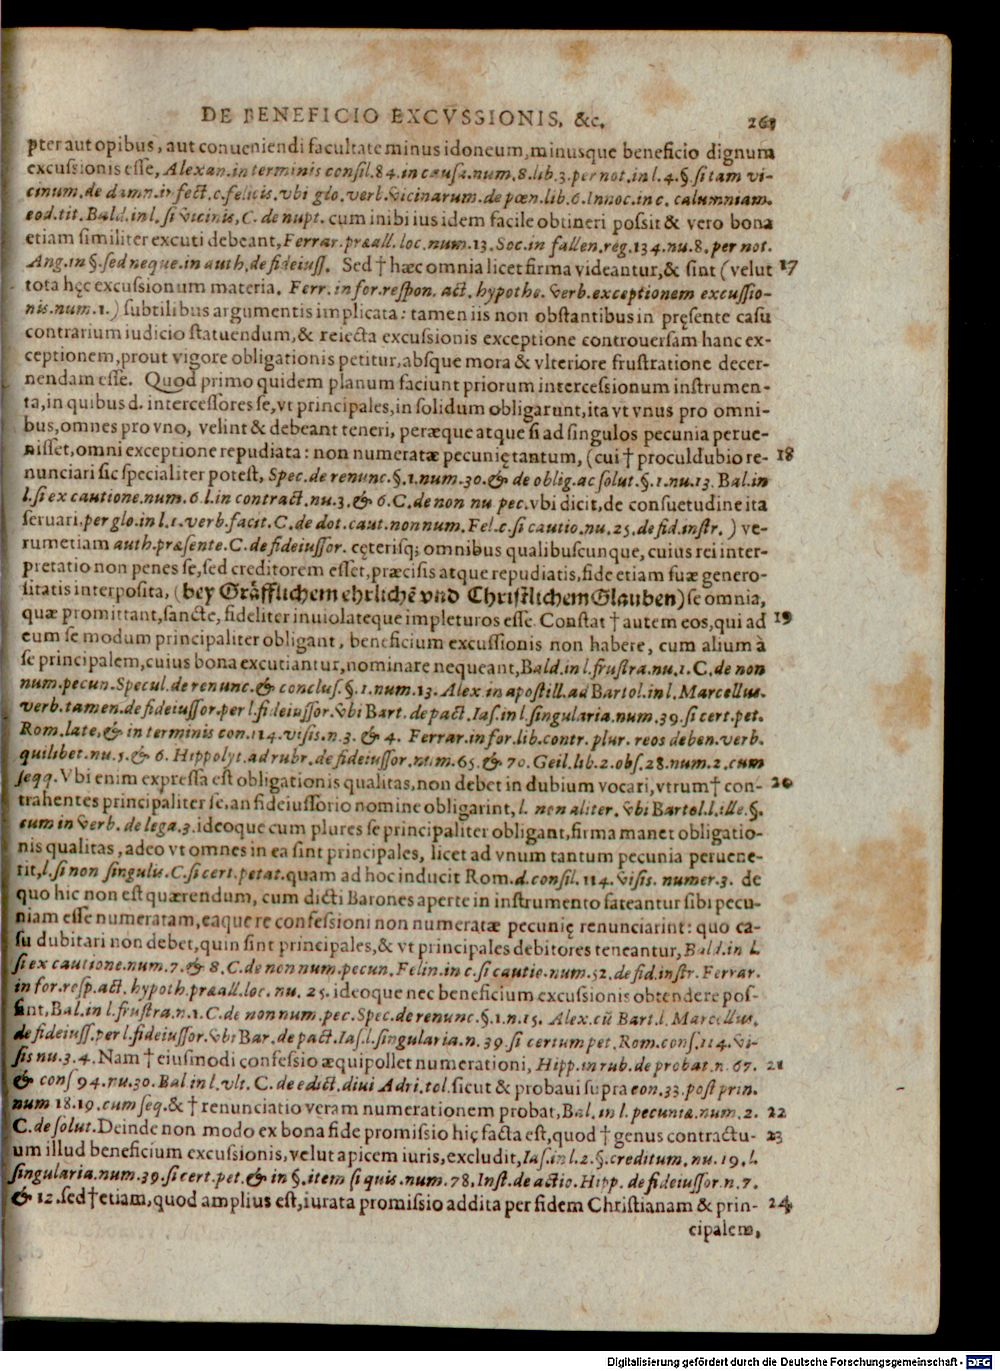 DE BENEFICIO EXCVSSIONIS, &c. 261
pter aut opibus, aut conueniendi facultate minus idoneum, minusque beneficio dignum
excussionis esse, Alexan. in terminis consil. 84. in causa. num. 8. lib. 3. per not. in l. 4. §. si tam vi-
cinum. de damn. infect. c. felicis. vbi glo. verb. vicinarum. de pœn. lib. 6. Innoc. in c. calumniam.
eod. tit. Bald. in l. si vicinis, C. de nupt. cum inibi ius idem facile obtineri possit & vero bona
etiam similiter excuti debeant, Ferrar. præall. loc. num. 13. Soc. in fallen. reg. 134. nu. 8. per not.
Ang. in §. sed neque. in auth. de fideiuss. Sed † hæc omnia licet firma videantur, & sint (velut 17
tota hęc excussionum materia. Ferr. in for. respon. act. hypothe. verb. exceptionem excussio-
nis. num. 1.) subtilibus argumentis implicata: tamen iis non obstantibus in pręsente casu
contrarium iudicio statuendum, & reiecta excussionis exceptione controuersam hanc ex-
ceptionem, prout vigore obligationis petitur, absque mora & vlteriore frustratione decer-
nendam esse. Quod primo quidem planum faciunt priorum intercessionum instrumen-
ta, in quibus d. intercessores se, vt principales, in solidum obligarunt, ita vt vnus pro omni-
bus, omnes pro vno, velint & debeant teneri, peræque atque si ad singulos pecunia perue-
nisset, omni exceptione repudiata: non numeratæ pecunię tantum, (cui † proculdubio re- 18
nunciari sic specialiter potest, Spec. de renunc. §. 1. num. 30. & de oblig. ac solut. §. 1. nu. 13. Bal. in
l. si ex cautione. num. 6. l. in contract. nu. 3. & 6. C. de non nu pec. vbi dicit, de consuetudine ita
seruari. per glo. in l. 1. verb. facit. C. de dot. caut. non num. Fel. c. si cautio. nu. 25. de fid. instr.) ve-
rumetiam auth. præsente. C. de fideiussor. cęterisq; omnibus qualibuscunque, cuius rei inter-
pretatio non penes se, sed creditorem esset, præcisis atque repudiatis, fide etiam suæ genero-
sitatis interposita, (bey Gräfflichem ehrlichē vnd Christlichem Glauben) se omnia,
quæ promittant, sancte, fideliter inuiolateque impleturos esse. Constat † autem eos, qui ad 19
eum se modum principaliter obligant, beneficium excussionis non habere, cum alium à
se principalem, cuius bona excutiantur, nominare nequeant, Bald. in l. frustra. nu. 1. C. de non
num. pecun. Specul. de renunc. & conclus. §. 1. num. 13. Alex in apostill. ad Bartol. in l. Marcellus.
verb. tamen. de fideiussor. per l. fideiussor. vbi Bart. de pact. Ias. in l. singularia. num. 39. si cert. pet.
Rom. late, & in terminis con. 114. visis. n. 3. & 4. Ferrar. in for. lib. contr. plur. reos deben. verb.
quilibet. nu. 5. & 6. Hippolyt. ad rubr. de fideiussor. num. 65. & 70. Geil. lib. 2. obs. 28. num. 2. cum
seqq. Vbi enim expressa est obligationis qualitas, non debet in dubium vocari, vtrum † con- 20
trahentes principaliter se, an fideiussorio nomine obligarint, l. non aliter. vbi Bartol. l. ille. §.
cum in verb. de lega. 3. ideoque cum plures se principaliter obligant, firma manet obligatio-
nis qualitas, adeo vt omnes in ea sint principales, licet ad vnum tantum pecunia peruene-
rit, l. si non singulis. C. si cert. petat. quam ad hoc inducit Rom. d. consil. 114. visis. numer. 3. de
quo hic non est quærendum, cum dicti Barones aperte in instrumento fateantur sibi pecu-
niam esse numeratam, eaque re confessioni non numeratæ pecunię renunciarint: quo ca-
su dubitari non debet, quin sint principales, & vt principales debitores teneantur, Bald. in l.
si ex cautione. num. 7. & 8. C. de non num. pecun. Felin. in c. si cautio. num. 52. de fid. instr. Ferrar.
in for. resp. act. hypoth. præall. loc. nu. 25. ideoque nec beneficium excussionis obtendere pos-
sint, Bal. in l. frustra. n. 1. C. de non num. pec. Spec. de renunc. §. 1. n. 15. Alex. cū Bart. l. Marcellus.
de fideiuss. per l. fideiussor. vbi Bar. de pact. Ias. l. singularia. n. 39. si certum pet. Rom. cons. 114. vi-
sis nu. 3. 4. Nam † eiusmodi confessio æquipollet numerationi, Hipp. in rub. de probat. n. 67. 21
& cons 94. nu. 30. Bal in l. vlt. C. de edict. diui Adri. tol. sicut & probaui supra con. 33. post prin.
num 18. 19. cum seq. & † renunciatio veram numerationem probat, Bal. in l. pecunia. num. 2. 22
C. de solut. Deinde non modo ex bona fide promissio hîc facta est, quod † genus contractu- 23
um illud beneficium excussionis, velut apicem iuris, excludit, Ias. in l. 2. §. creditum. nu. 19. l.
singularia. num. 39. si cert. pet. & in §. item si quis. num. 78. Inst. de actio. Hipp. de fideiussor. n. 7.
& 12. sed † etiam, quod amplius est, iurata promissio addita per fidem Christianam & prin- 24
cipalem,
Digitalisierung gefördert durch die Deutsche Forschungsgemeinschaft - DFG